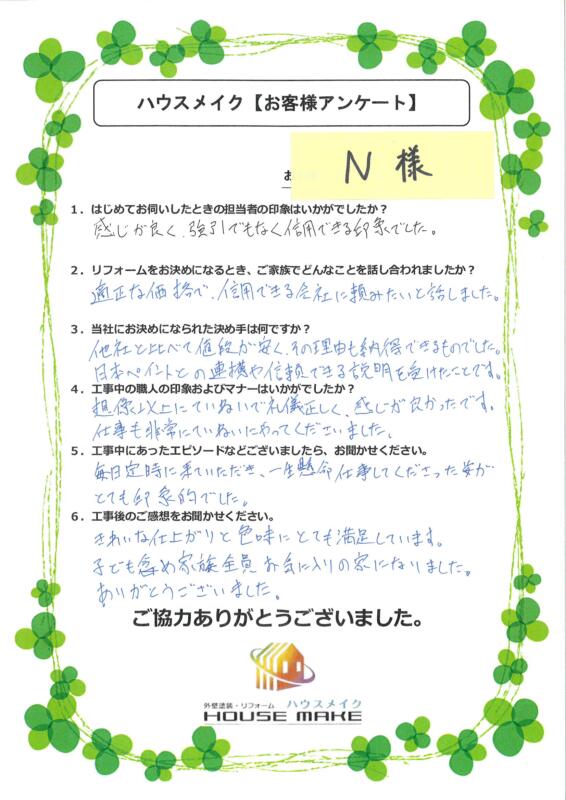 ハウスメイク【お客様アンケート】
お
N 様
1．はじめてお伺いしたときの担当者の印象はいかがでしたか？
感じが良く、強引でもなく信用できる印象でした。
2．リフォームをお決めになるとき、ご家族でどんなことを話し合われましたか？
適正な価格で、信用できる会社に頼みたいと話しました。
3．当社にお決めになられた決め手は何ですか？
他社と比べて値段が安く、その理由も納得できるものでした。
日本ペイントとの連携や信頼できる説明を受けたことです。
4．工事中の職人の印象およびマナーはいかがでしたか？
想像以上にていねいで礼儀正しく、感じが良かったです。
仕事も非常にていねいにやってくださいました。
5．工事中にあったエピソードなどございましたら、お聞かせください。
毎日定時に来ていただき、一生懸命仕事してくださった姿が
とても印象的でした。
6．工事後のご感想をお聞かせください。
きれいな仕上がりと色味にとても満足しています。
子ども含め家族全員お気に入りの家になりました。
ありがとうございました。
ご協力ありがとうございました。
外壁塗装・リフォーム ハウスメイク
HOUSE MAKE